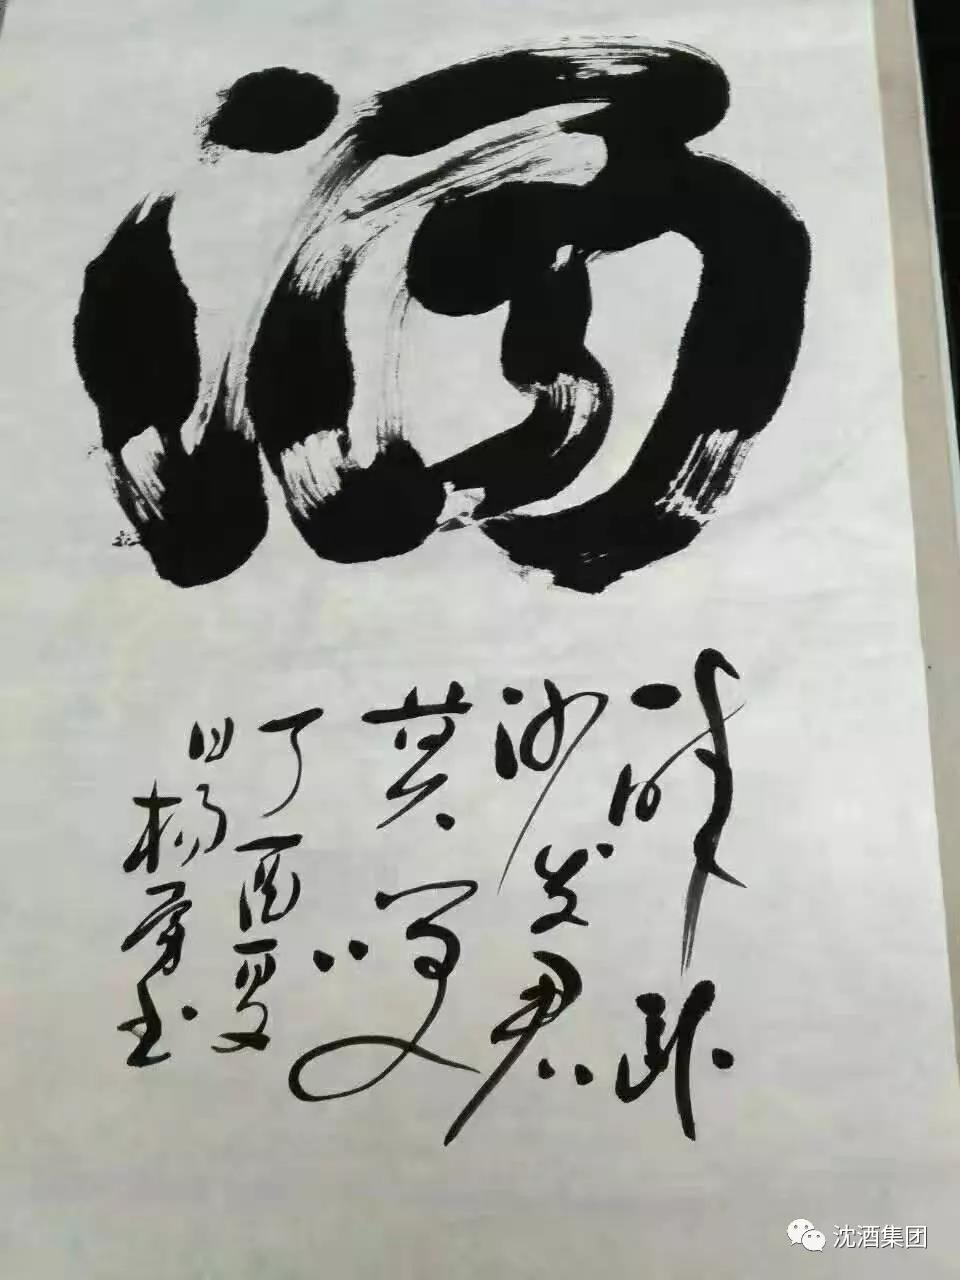 酒
醉卧
沙场君
莫笑
丁酉夏
日杨书
沈酒集团